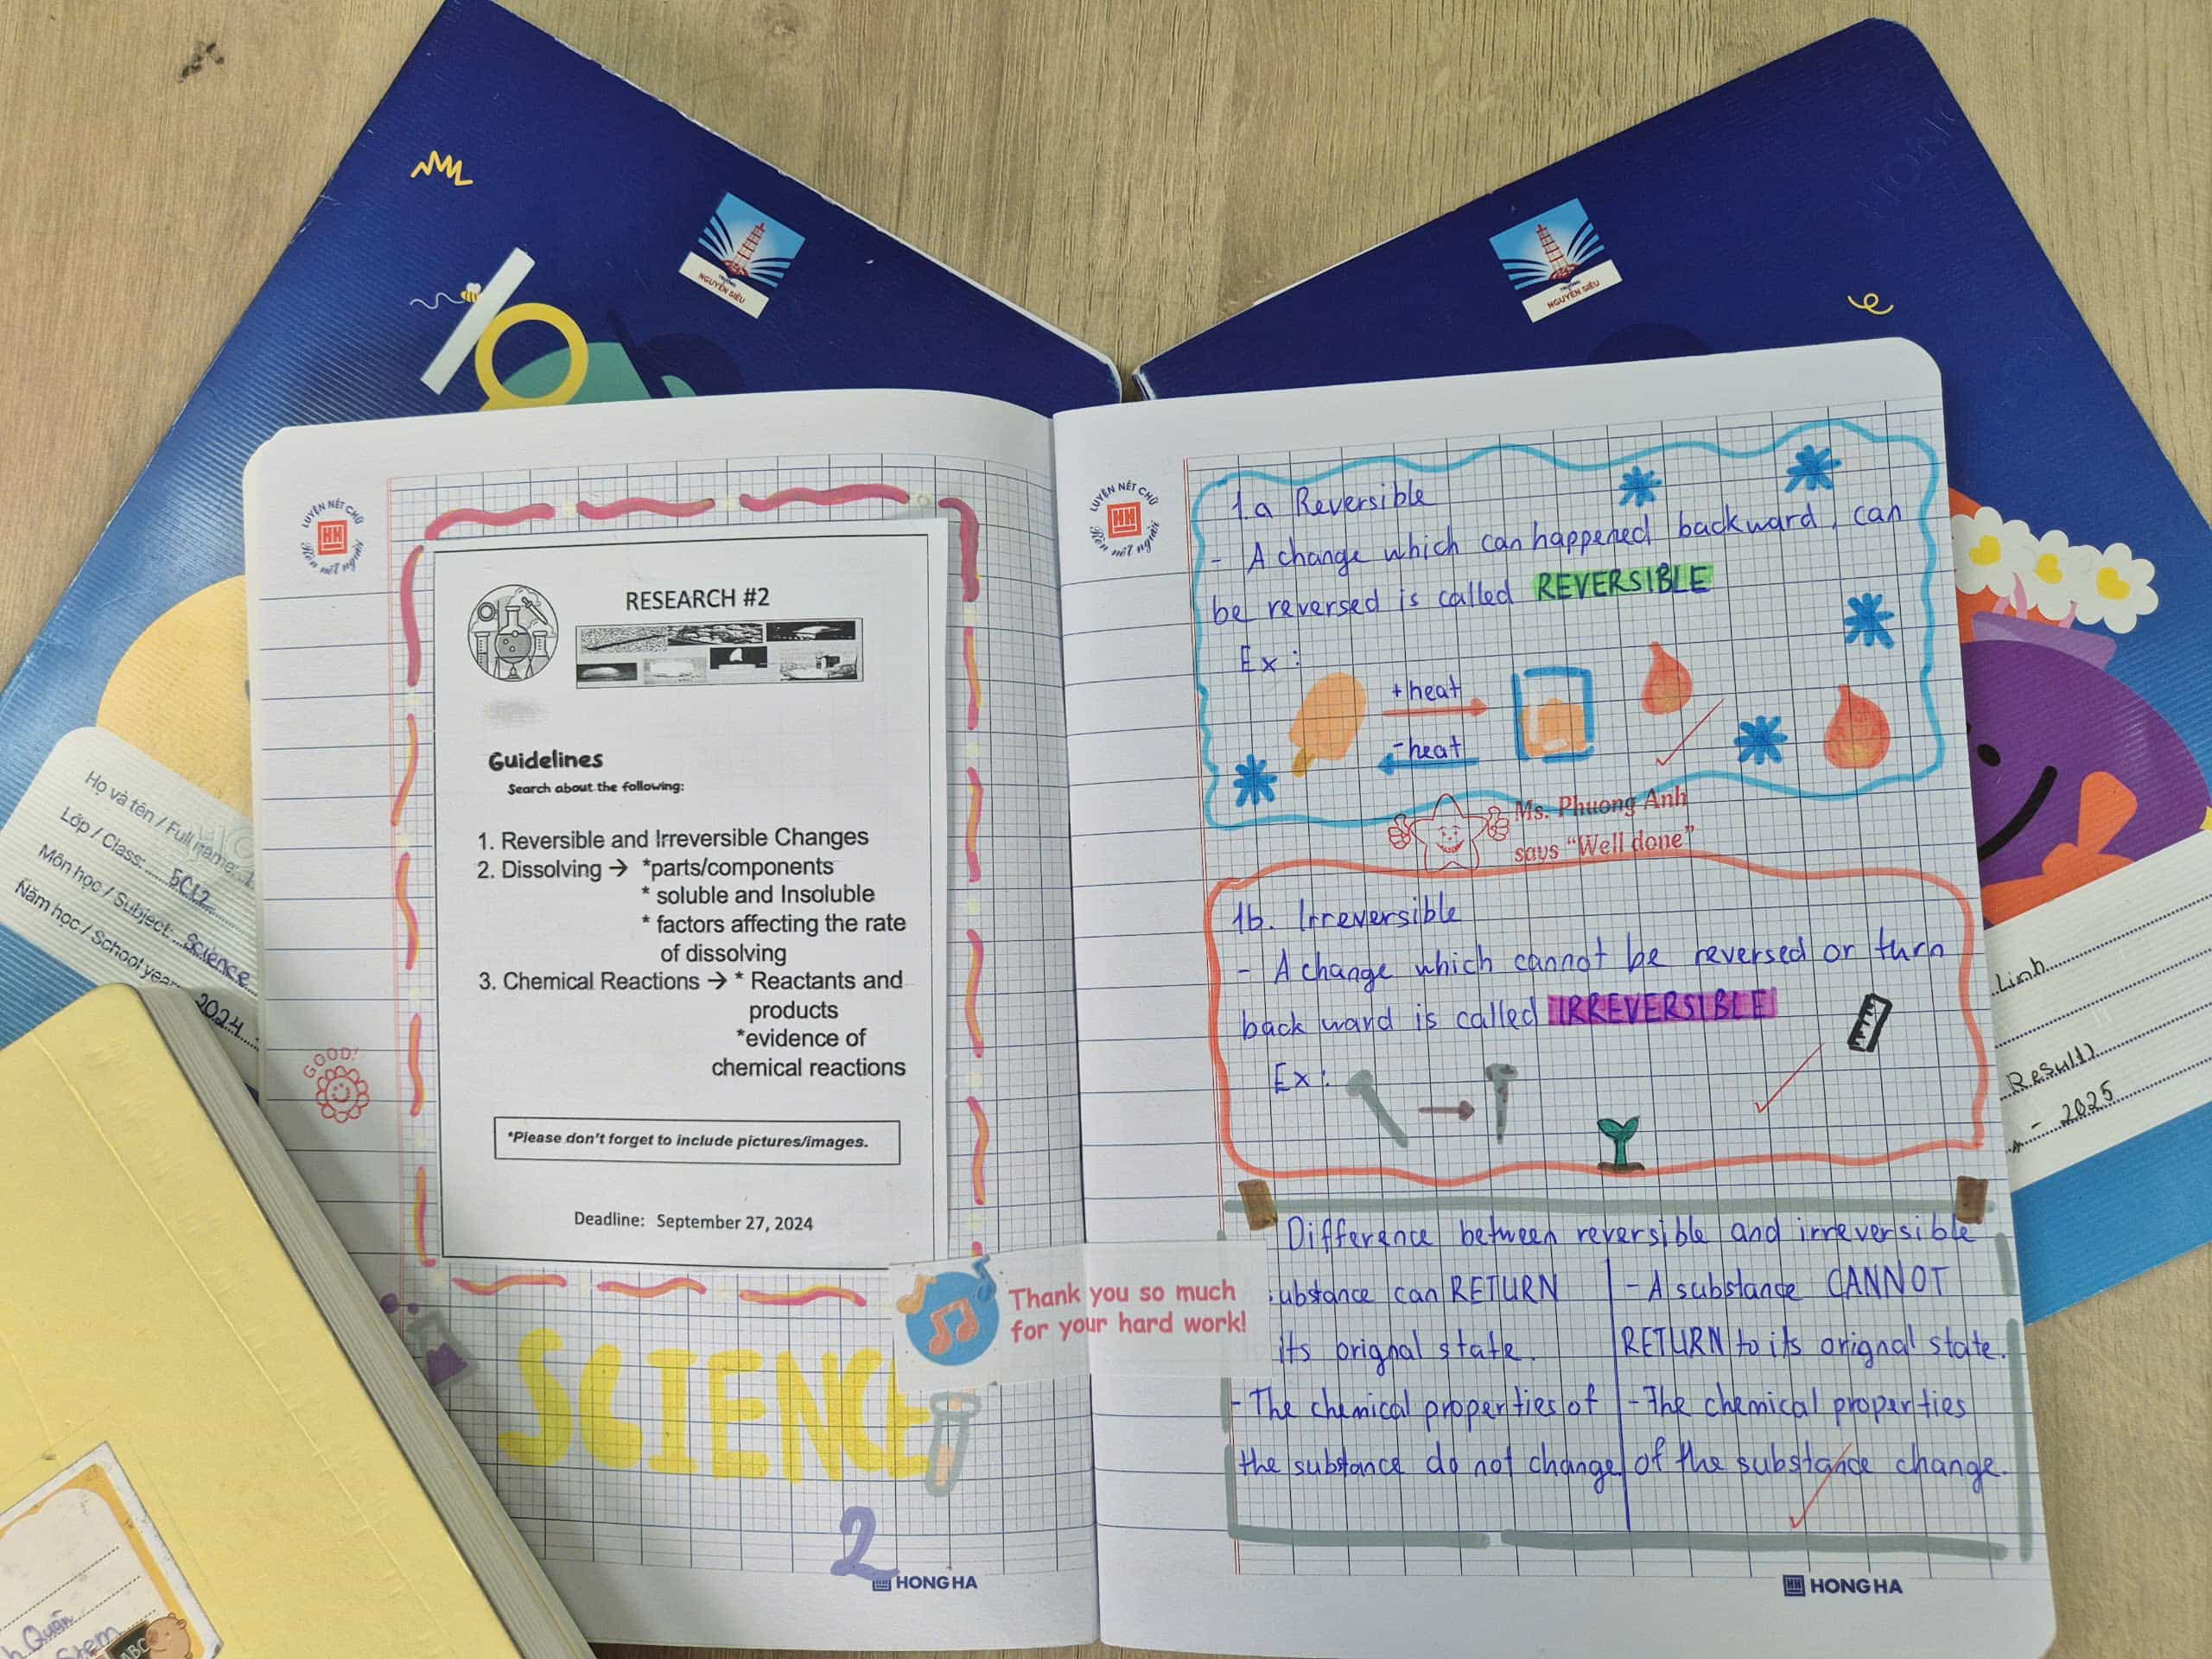 TRƯỜNG
NGUYỄN SIÊU
TRƯỜNG
NGUYỄN SIÊU
Họ và tên / Full name:
Lớp / Class: 5C12
Môn học / Subject: Science
Năm học / School year: 2024
LUYỆN NÉT CHỮ
Rèn nết người
RESEARCH #2
Guidelines
Search about the following:
1. Reversible and Irreversible Changes
2. Dissolving → *parts/components
* soluble and Insoluble
* factors affecting the rate
of dissolving
3. Chemical Reactions → * Reactants and
products
*evidence of
chemical reactions
*Please don't forget to include pictures/images.
Deadline: September 27, 2024
GOOD!
SCIENCE
2
HONG HA
Thank you so much
for your hard work!
LUYỆN NÉT CHỮ
Rèn nết người
1.a Reversible
- A change which can happened backward, can
be reversed is called REVERSIBLE
Ex:
+heat
-heat
Ms. Phuong Anh
says "Well done"
1b. Irreversible
- A change which cannot be reversed or turn
back ward is called IRREVERSIBLE
Ex:
Difference between reversible and irreversible
ubstance can RETURN
its orignal state.
- The chemical properties of
the substance do not change
- A substance CANNOT
RETURN to its orignal state.
- The chemical properties
of the substance change.
HONG HA
Linh
2025
h Quân
Stem
ABC